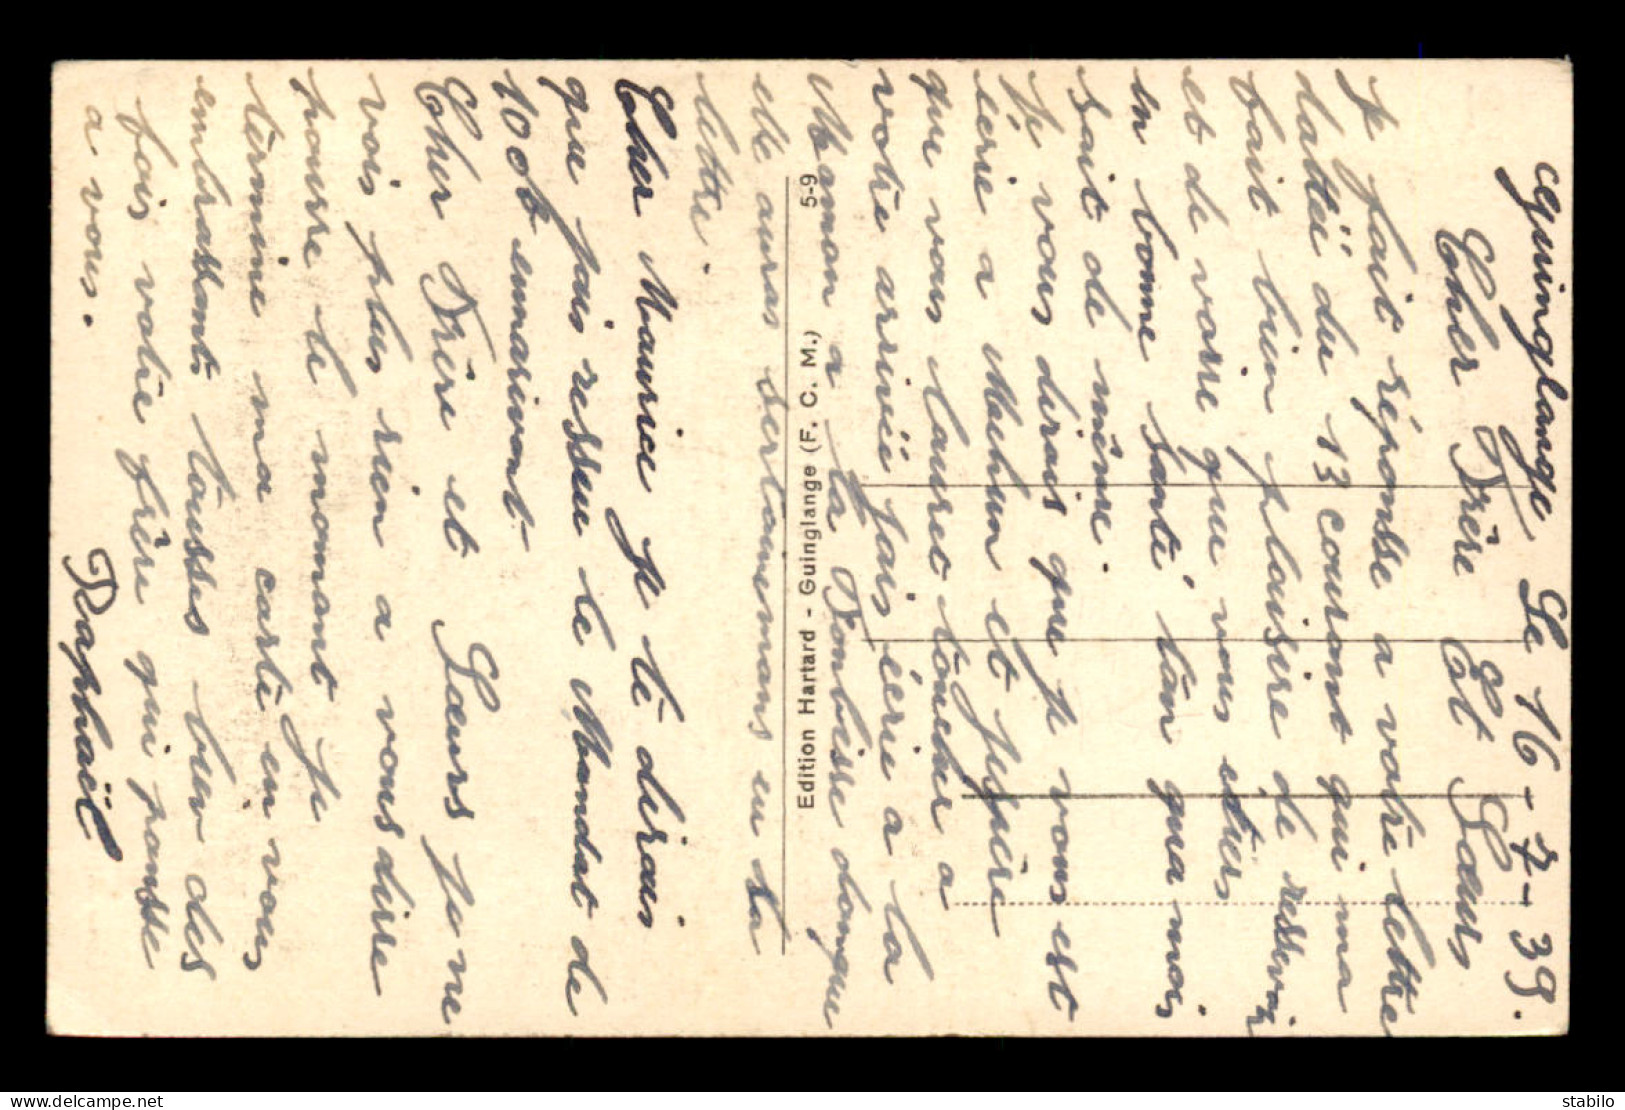 cguinglange Le 16-7-39.
Cher Frère Et Sœurs
Je fait réponsse a votre lettre
dattéë du 13 courant qui ma
fait bien plaisire de ressevoir
et de voire que vous etres
en bonne santé tan qua moi
sait de même.
Je vous dirais que je vous est
écrie a Mehun et jespère
que vous lauret toucher a
votre arrivéë jais écrie a la
Maman a la Dombisse donque
elle auras sertainemans eu sa
lettre.
Cher Maurice je te dirais
que jais ressue le Mandat de
100 enmarivant
Cher Frère et Sœurs je ne
vois plus rien a vous dirre
pourre le momant je
termine ma carte en vous
embrassants tousses bien des
fois votre frère qui pansse
a vous.
Raphaël
Edition Hartard - Guinglange (F. C. M.)
5-9
www.delcampe.net
stabilo